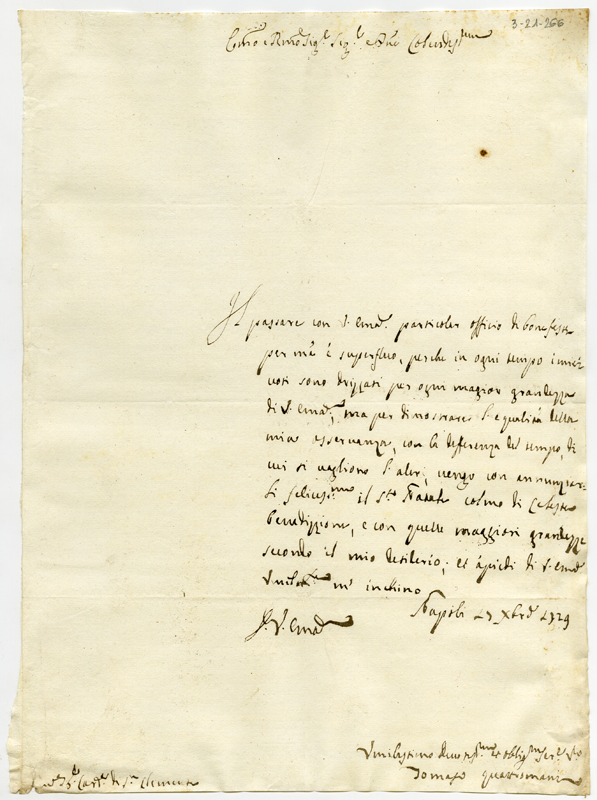 3-21-266
Em̃o e Rm̃o Sig.r Sig.r e Pñe Colendis.mo
Il passare con V. Em.a particolar officio di bone feste
per me è superfluo, perche in ogni tempo i miei
voti sono drizzati per ogni maggior grandezza
di V. Em.a, ma per dimostrare l'equalità della
mia osservanza, con la differenza del tempo, di
cui si vagliono l'altri, vengo con annunziar-
li felicis.mo il S.to Natale colmo di Celeste
benedizzione, e con quelle maggiori grandezze
secondo il mio desiderio; et a piedi di V. Em.a
m'inchino
Napoli 17 Xbre 1729
D. V. Em.a
Umilissimo Devotis.mo et Oblig.mo Ser.e
Tomaso Quaromani
Sig.r Card.l di S. Clemente